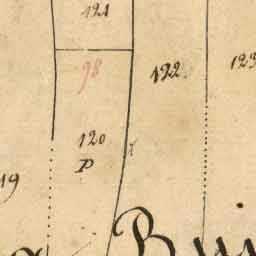 121
98
122
123
120
P
19